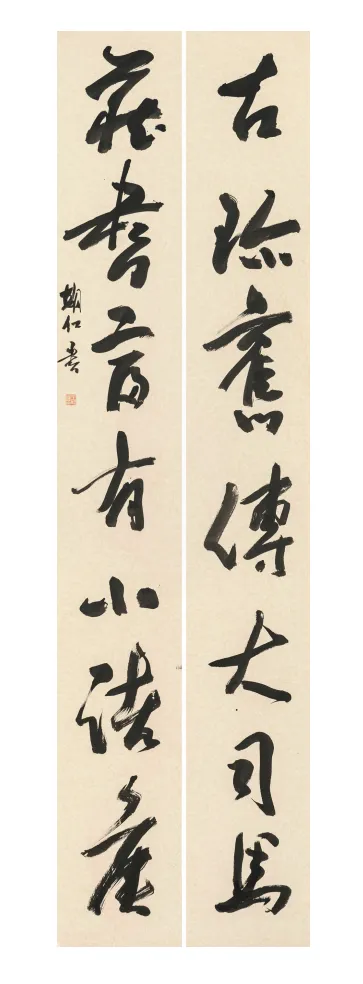 古珎舊傳大司馬
藏書富有小諸矦
仁書